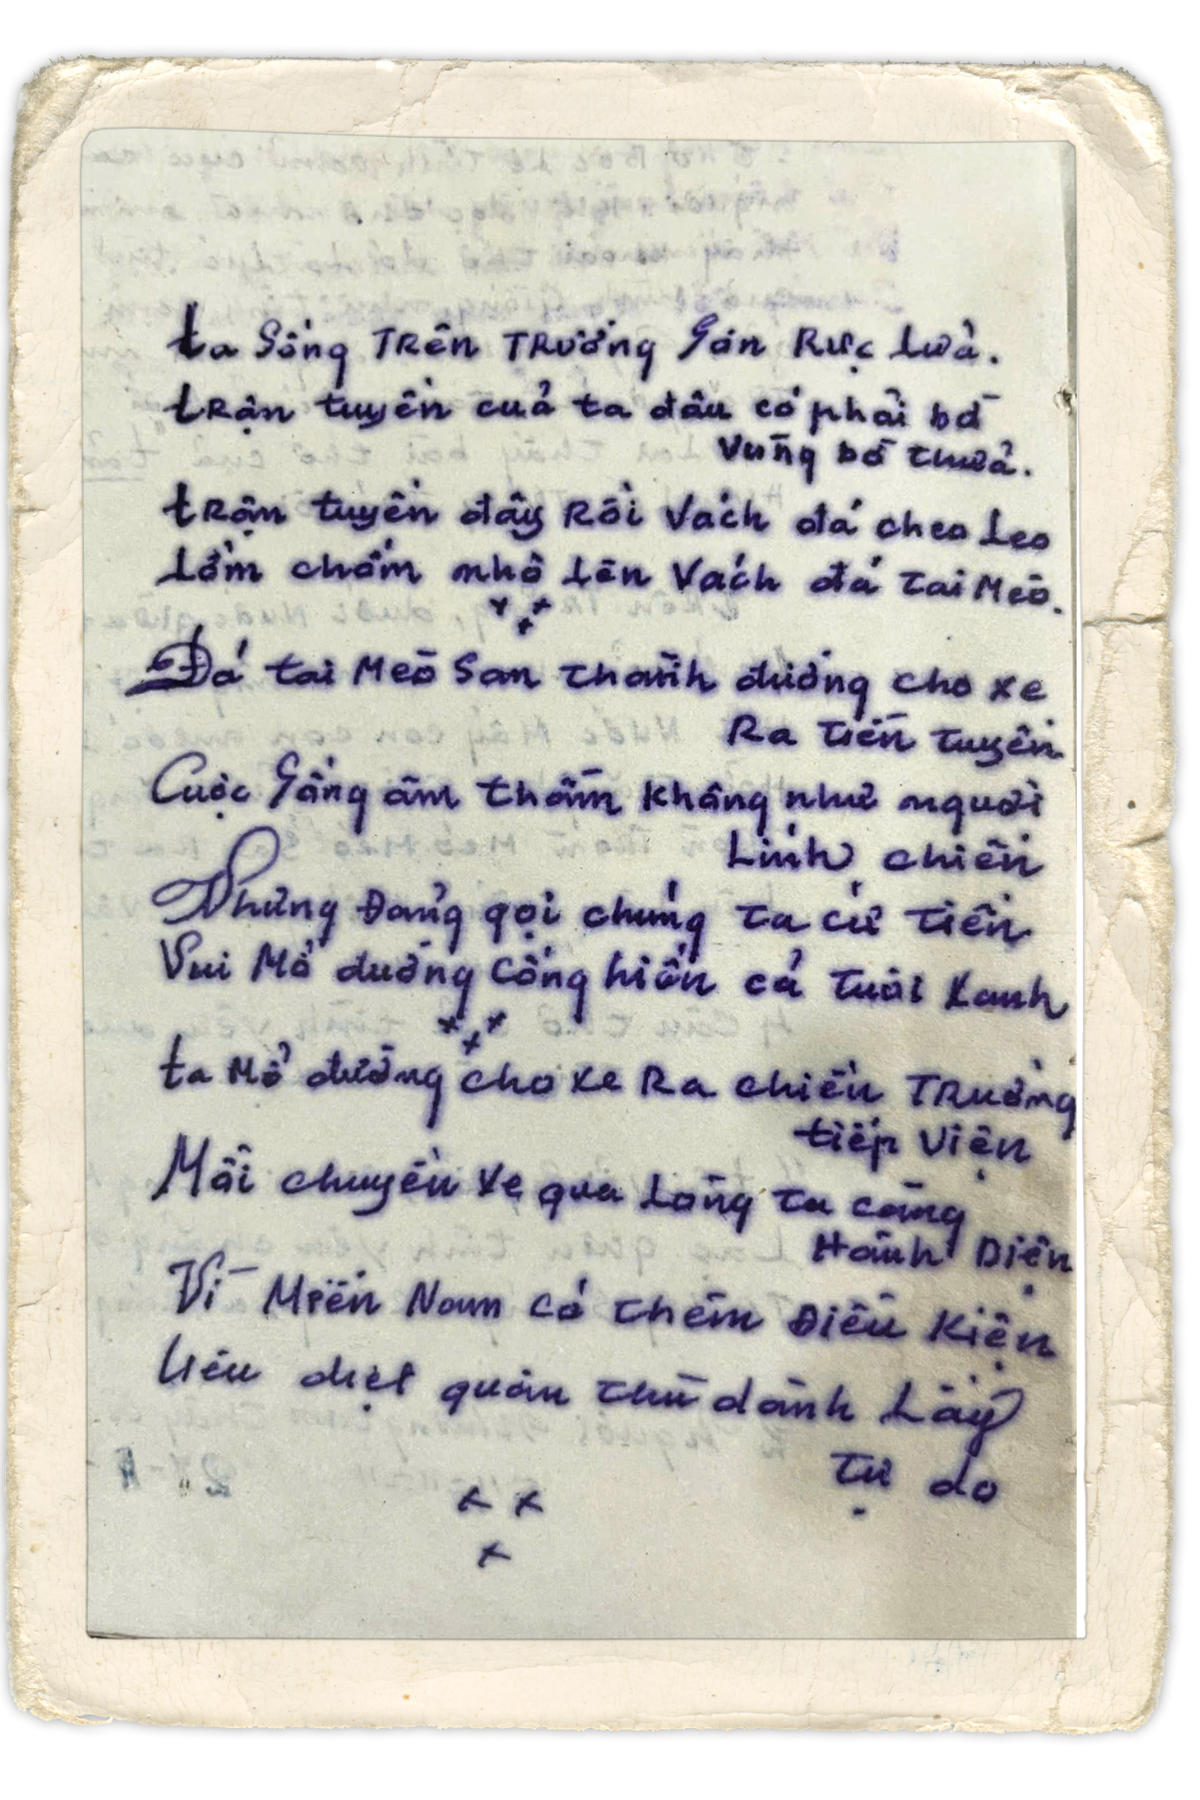 ta Sống TRên TRường Sơn Rực Lửa.
tRận tuyến của ta đâu có phải bờ
vùng bờ thửa.
tRận tuyến đây Rồi Vách đá cheo Leo
Lởm chởm nhô Lên Vách đá tai Mèo.
x x x
Đá tai Mèo San thành đường cho xe
Ra tiền tuyến
Cuộc Sống âm thầm không như người
Lính chiến
Nhưng Đảng gọi chúng ta cứ tiến
Vui Mở đường Cống hiến cả tuổi Xanh
x x x
ta Mở đường cho xe Ra chiến TRường
tiếp viện
Mỗi chuyến xe qua Lòng ta càng
Hãnh Diện
Vì Miền Nam có thêm Điều Kiện
tiêu diệt quân thù dành Lấy
tự do
x x
x